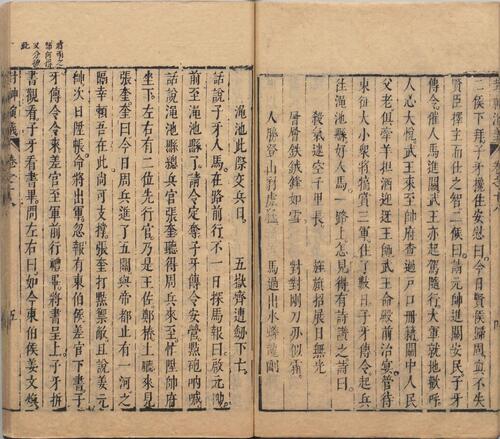 一侯下拜子牙攙住安慰曰今日賢侯歸周真不失
賢臣擇主而仕之智二侯曰請元帥進關安民子牙
傳令催人馬進關武王亦起駕隨行大軍就地歡呼
人心大悅武王來至帥府查過戶口冊籍關中人民
父老俱牽羊担酒迎迓王師武王命殿前治宴管待
東征大小衆將犒賞三軍住了數日子牙傳令起兵
往澠池縣好人馬一路上怎見得有詩讃之詩曰
殺氣迷空千里長 旌旗招展日無光
層層鐵鉞鋒如雪 對對剛刀刃似霜
人勝登山豺虎猛 馬過出水蟒龍剛
澠池此際交兵日 五嶽齊遭劫下亡
話說子牙人馬在路前行不一日探馬報曰啟元帥
前至澠池縣了請令定奪子牙傳令安營㸃砲吶喊
話說澠池縣總兵官張奎聽得周兵來至忙陞帥府
坐下左右有二位先行官乃是王佐鄭椿上㕔來見
張奎奎曰今日周兵進了五關與帝都止有一河之
隔幸賴吾在此尚可支撐張奎打㸃禦敵且說姜元
帥次日陞帳命將出軍忽報有東伯侯差官下書子
牙傳令令來差官至軍前行禮畢將書呈上子牙拆
書觀看子牙看書畢問左右曰如今東伯侯姜文煥
封神演義 卷之十八 五